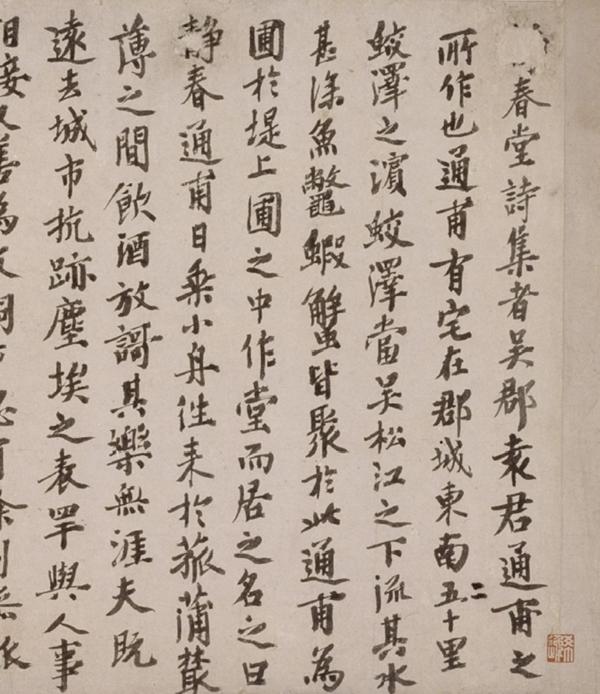 春堂詩集者吳郡袁君通甫之
所作也通甫有宅在郡城東南五十里
蛟澤之濱蛟澤當吴松江之下流其水
甚深魚鼈蝦蟹皆聚於此通甫為
圃於堤上圃之中作堂而居之名之曰
静春通甫日乗小舟徃来於菰蒲藂
薄之間飲酒放謌其樂無涯夫既
遠去城市抗跡塵埃之表罕與人事
相接又善為文詞